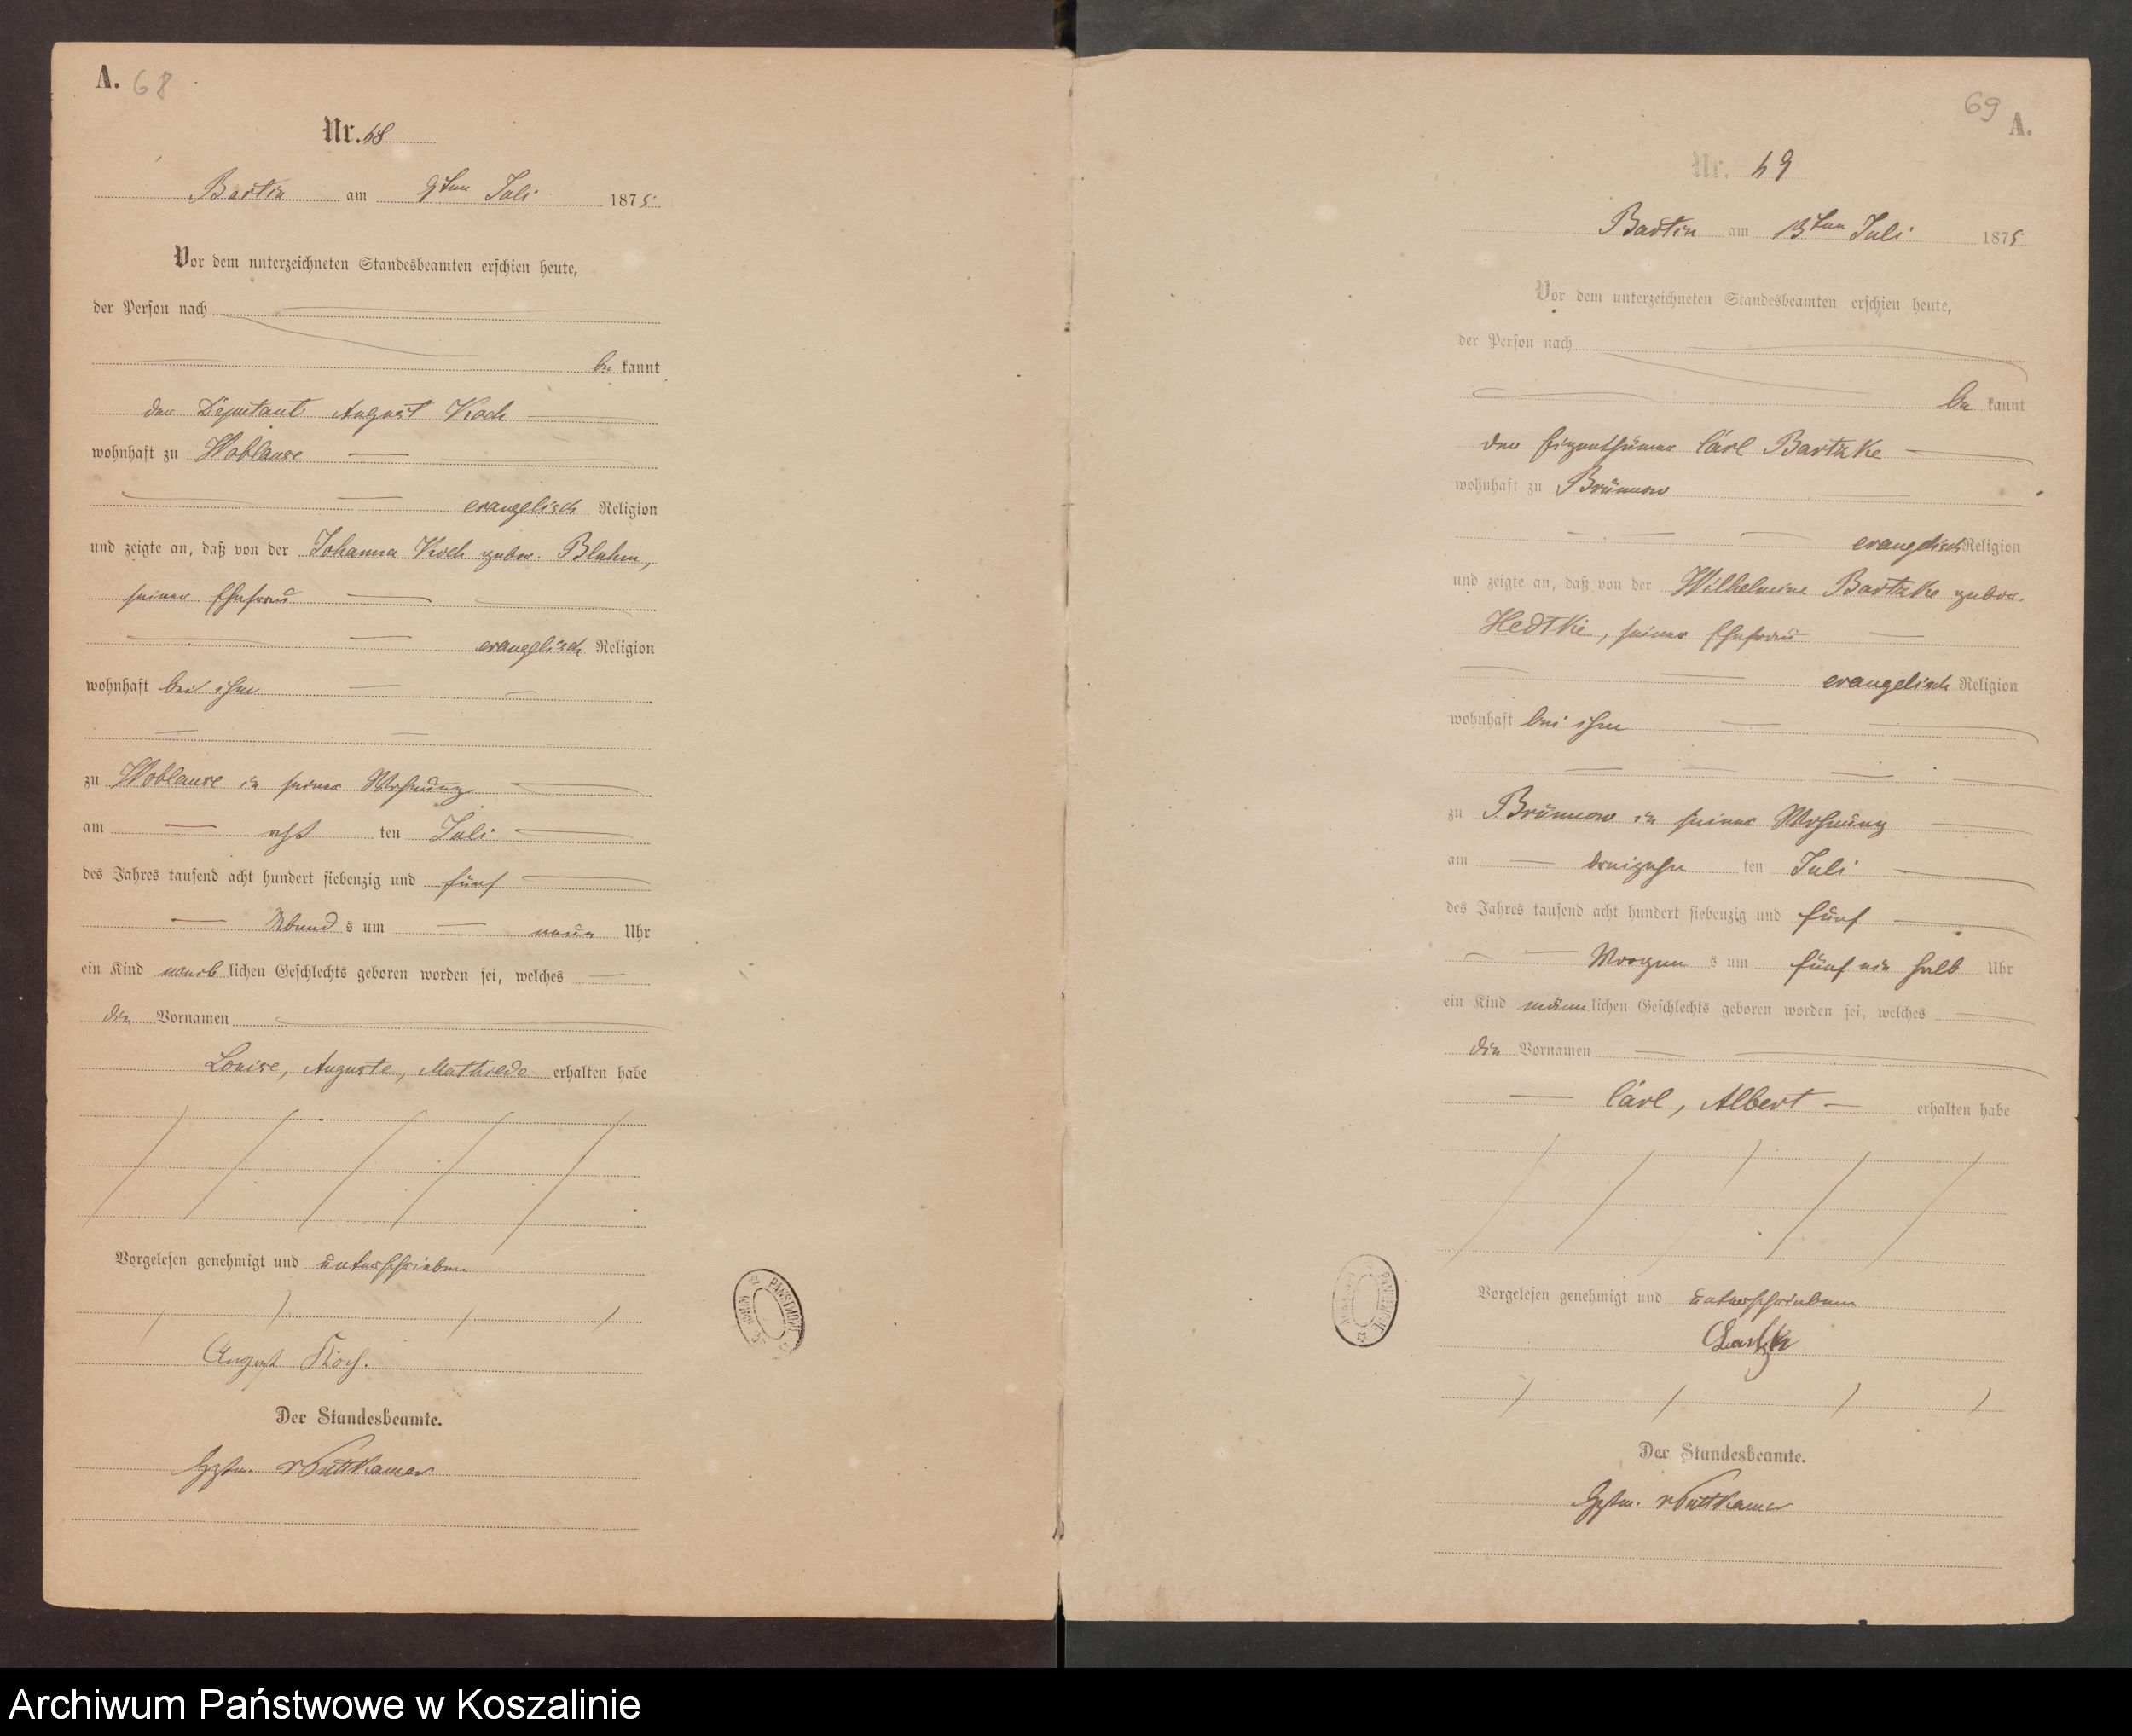 A. 68
Nr. 68
Bartin am 9ten Juli 1875
Vor dem unterzeichneten Standesbeamten erschien heute,
der Person nach
be kannt
der Deputant August Koch
wohnhaft zu Woblanse
evangelisch Religion
und zeigte an, daß von der Johanna Koch gebor. Bluhm,
seiner Ehefrau
evangelisch Religion
wohnhaft bei ihm
zu Woblanse in seiner Wohnung
am acht ten Juli
des Jahres tausend acht hundert siebenzig und fünf
Abend s um neun Uhr
ein Kind weib lichen Geschlechts geboren worden sei, welches
die Vornamen
Louise, Auguste, Mathilde erhalten habe
Vorgelesen genehmigt und unterschrieben
August Koch.
Der Standesbeamte.
vPuttkamer
69 A.
Nr. 69
Bartin am 13ten Juli 1875
Vor dem unterzeichneten Standesbeamten erschien heute,
der Person nach
be kannt
der Eigenthümer Carl Bartzke
wohnhaft zu Brünnow
evangelisch Religion
und zeigte an, daß von der Wilhelmine Bartzke gebor.
Hedtke, seiner Ehefrau
evangelisch Religion
wohnhaft bei ihm
zu Brünnow in seiner Wohnung
am dreizehn ten Juli
des Jahres tausend acht hundert siebenzig und fünf
Morgen s um fünf ein halb Uhr
ein Kind männ lichen Geschlechts geboren worden sei, welches
die Vornamen
Carl, Albert erhalten habe
Vorgelesen genehmigt und unterschrieben
Der Standesbeamte.
vPuttkamer
Archiwum Państwowe w Koszalinie